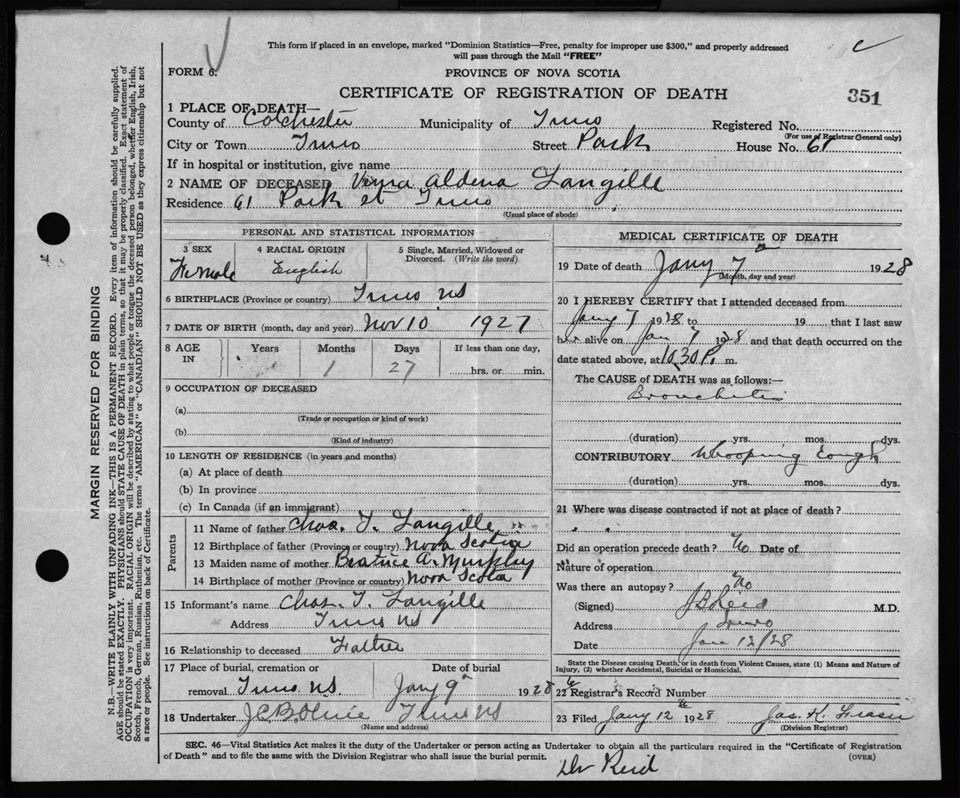 This form if placed in an envelope, marked "Dominion Statistics—Free, penalty for improper use $300," and properly addressed
will pass through the Mail "FREE"
FORM 6.
PROVINCE OF NOVA SCOTIA
CERTIFICATE OF REGISTRATION OF DEATH
351
1 PLACE OF DEATH—
County of Colchester Municipality of Truro Registered No.
(For use of Registrar General only)
City or Town Truro Street Park House No. 61
If in hospital or institution, give name
2 NAME OF DECEASED Aldena Langille
Residence 61 Park St Truro
(Usual place of abode)
PERSONAL AND STATISTICAL INFORMATION
3 SEX 4 RACIAL ORIGIN 5 Single, Married, Widowed or Divorced. (Write the word)
Female English
6 BIRTHPLACE (Province or country) Truro NS
7 DATE OF BIRTH (month, day and year) Nov 10 1927
8 AGE IN Years Months Days If less than one day,
1 27 hrs. or min.
9 OCCUPATION OF DECEASED
(a)
(Trade or occupation or kind of work)
(b)
(Kind of industry)
10 LENGTH OF RESIDENCE (in years and months)
(a) At place of death
(b) In province
(c) In Canada (if an immigrant)
Parents
11 Name of father Chas. T. Langille
12 Birthplace of father (Province or country) Nova Scotia
13 Maiden name of mother Beatrice A. Murphy
14 Birthplace of mother (Province or country) Nova Scotia
15 Informant's name Chas. T. Langille
Address Truro NS
16 Relationship to deceased Father
17 Place of burial, cremation or Date of burial
removal Truro NS. Jany 9 1928
18 Undertaker Truro NS
(Name and address)
MEDICAL CERTIFICATE OF DEATH
19 Date of death Jany 7 1928
(Month, day and year)
20 I HEREBY CERTIFY that I attended deceased from
Jany 7 1928 to 19 that I last saw
her alive on Jan 7 1928 and that death occurred on the
date stated above, at 10.30 P. m.
The CAUSE of DEATH was as follows:—
Bronchitis
(duration) yrs. mos. dys.
CONTRIBUTORY Whooping Cough
(duration) yrs. mos. dys.
21 Where was disease contracted if not at place of death?
Did an operation precede death? No Date of
Nature of operation
Was there an autopsy? No
(Signed) Reid M.D.
Address Truro
Date Jan 12/28
State the Disease causing Death, or in death from Violent Causes, state (1) Means and Nature of
Injury, (2) whether Accidental, Suicidal or Homicidal.
22 Registrar's Record Number
23 Filed Jany 12 1928 Jas. K. Fraser
(Division Registrar)
SEC. 46—Vital Statistics Act makes it the duty of the Undertaker or person acting as Undertaker to obtain all the particulars required in the "Certificate of Registration
of Death" and to file the same with the Division Registrar who shall issue the burial permit.
(OVER)
Dr Reid
MARGIN RESERVED FOR BINDING
N.B.—WRITE PLAINLY, WITH UNFADING INK—THIS IS A PERMANENT RECORD. Every item of information should be carefully supplied.
AGE should be stated EXACTLY. PHYSICIANS should STATE CAUSE OF DEATH in plain terms, so that it may be properly classified. Exact statement of
OCCUPATION is very important. RACIAL ORIGIN will be described by stating to what people or tongue the deceased person belonged, whether English, Irish,
Scotch, French, German, Russian, Ruthenian, etc. The terms "AMERICAN" or "CANADIAN" SHOULD NOT BE USED as they express citizenship but not
a race or people. See instructions on back of Certificate.